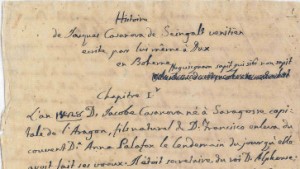 Histoire
de Jacques Casanova de Seingalt vénitien
ecrite par lui même à Dux
en Boheme
Nequicquam sapit qui sibi non sapit
Chapitre I.r
L'an D. Jacobe Casanova né à Saragosse, capi-
tale de l'Aragon, fils naturel de D. Francisco enleva du
couvent D. Anna Palafox le lendemain du jour qu'elle
avoit fait ses voeux. Il étoit secretaire du roi D. Alphonse.